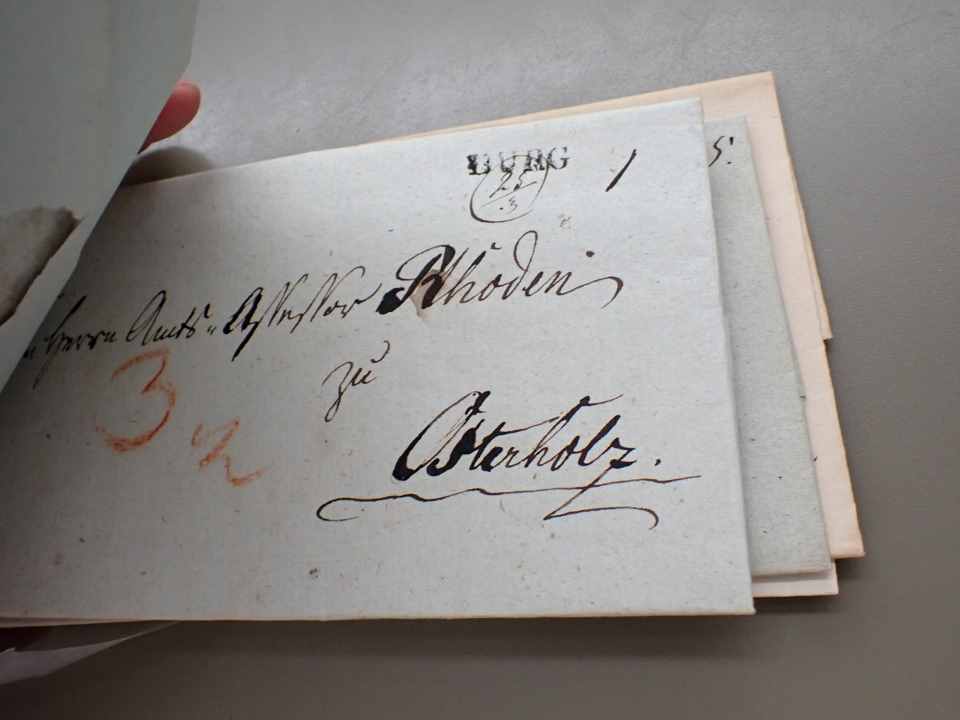 BURG
25
3
1
5.
Herrn Amts-Assessor Rhoden
zu
Osterholz.
3